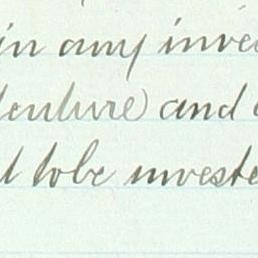 in any inve
denture) and
d to be investe